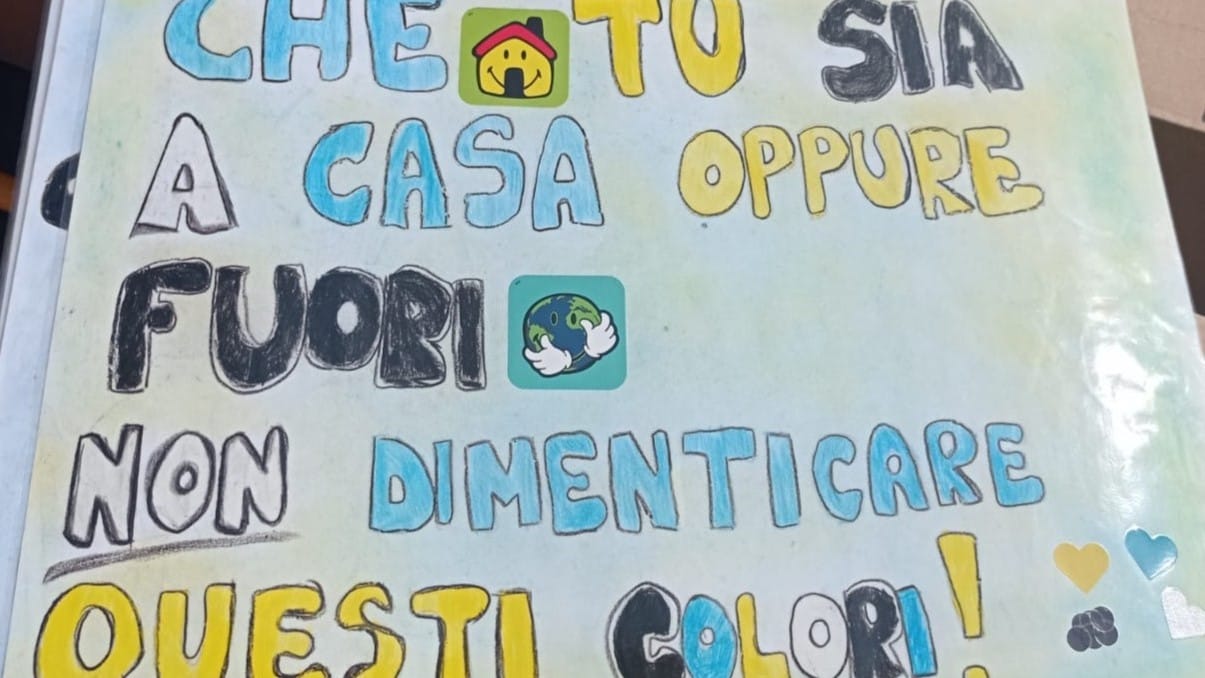 CHE TU SIA
A CASA OPPURE
FUORI
NON DIMENTICARE
QUESTI COLORI!